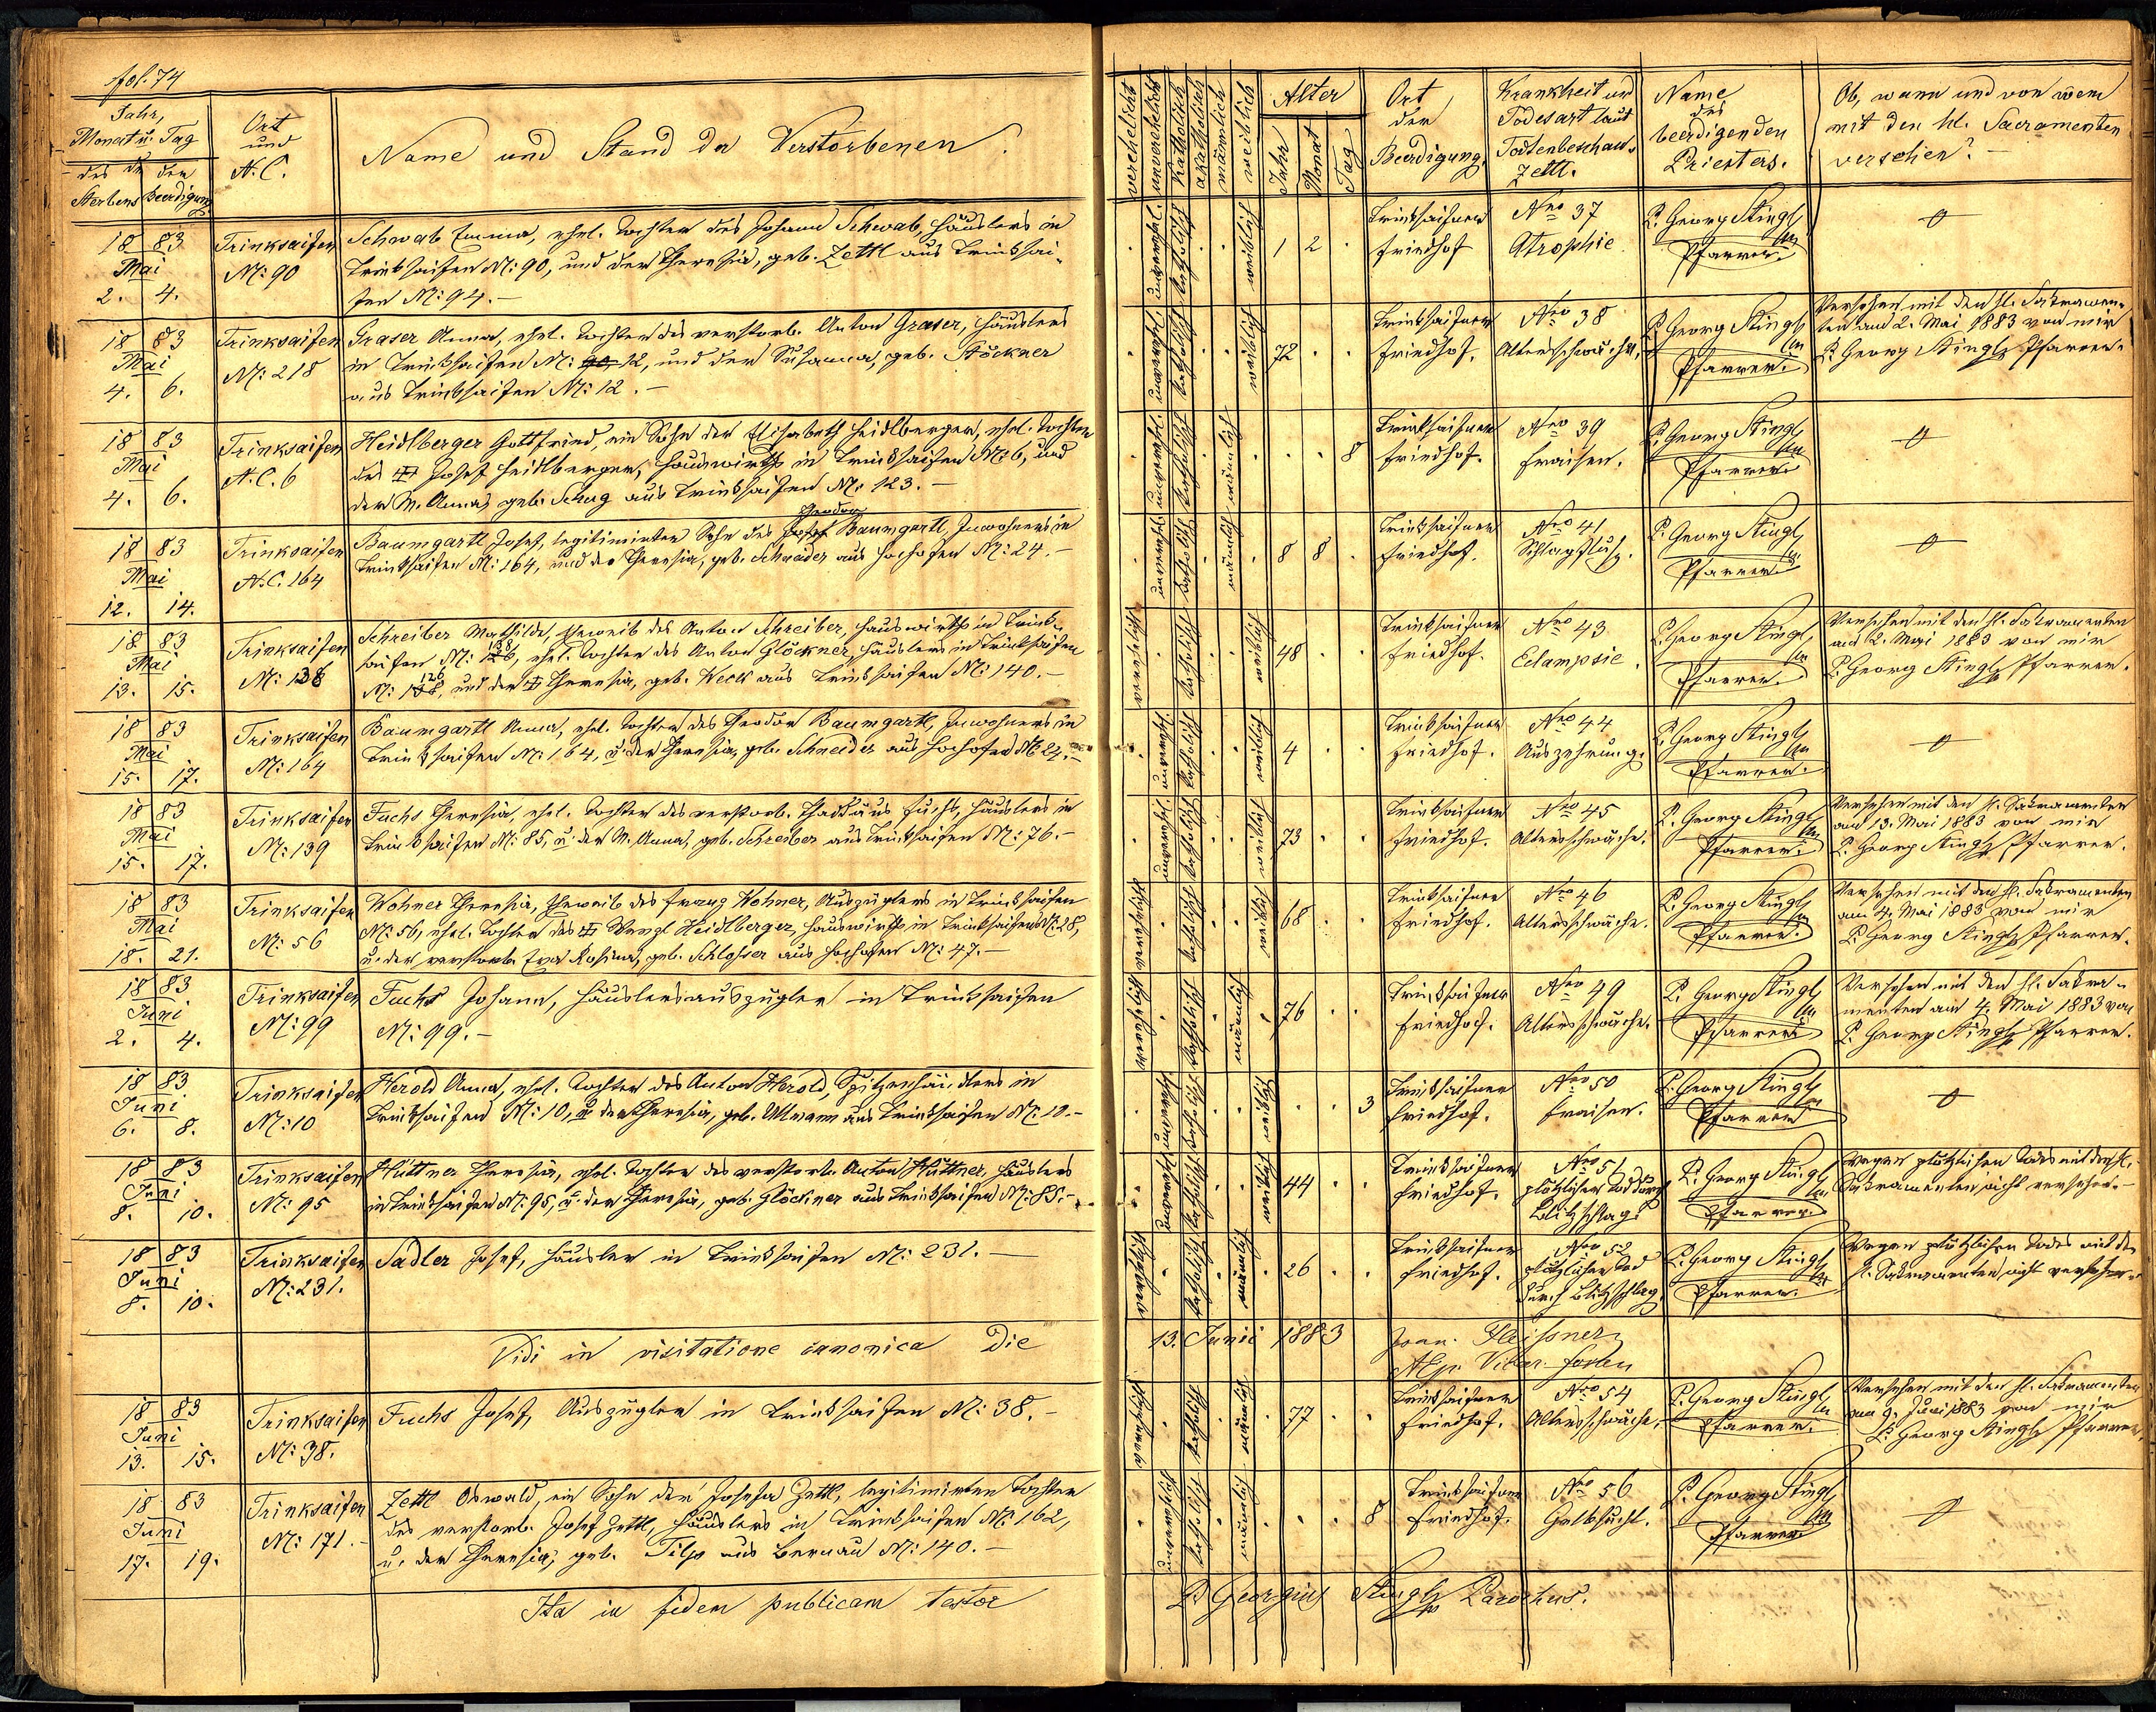 fol. 74
Jahr,
Monat u. Tag
des der
Sterbens Beerdigung
Ort
und
N.C.
Name und Stand der Verstorbenen.
verehelicht
unverehelicht
katholisch
akatholisch
männlich
weiblich
Alter
Jahr
Monat
Tag
Ort
der
Beerdigung.
Krankheit und
Todesart laut
Todtenbeschau-
zettl.
Name
des
beerdigenden
Priesters.
Ob, wann und von wem
mit den hl. Sacramenten
versehen? —
18 83
Mai
2. 4.
Trinksaifen
N: 90
Schwab Emma, ehel. Tochter des Johann Schwab, Häuslers in
Trinksaifen N: 90, und der Theresia, geb. Zettl aus Trinksai-
fen N: 94. —
unverehel. katholisch weiblich 1 2
Trinksaifner
Friedhof
Nro 37
Atrophie
P. Georg Stingl
Pfarrer.
18 83
Mai
4. 6.
Trinksaifen
N: 218
Graser Anna, ehel. Tochter des verstorb. Anton Graser, Häuslers
in Trinksaifen N: 12, und der Susanna, geb. Stöckner
aus Trinksaifen N: 12. —
unverehl. katholisch weiblich 72
Trinksaifner
Friedhof.
Nro 38
Altersschwäche.
P. Georg Stingl
Pfarrer.
Versehen mit den hl. Sakramen-
ten am 2. Mai 1883 von mir
P. Georg Stingl Pfarrer.
18 83
Mai
4. 6.
Trinksaifen
N.C. 6
Heidlberger Gottfried, ein Sohn der Elisabeth Heidlberger, ehel. Tochter
des Josef Heidlberger, Hauswirths in Trinksaifen N: 6, und
der M. Anna, geb. Schug aus Trinksaifen N: 123. —
unverehl. katholisch männlich 8
Trinksaifner
Friedhof.
Nro 39
Fraisen.
P. Georg Stingl
Pfarrer.
18 83
Mai
12. 14.
Trinksaifen
N.C. 164
Theodor
Baumgartl Josef, legitimirter Sohn des Josef Baumgartl, Inwohners in
Trinksaifen N: 164, und der Theresia, geb. Schneider aus Hochofen N: 24. —
unverehl. katholisch männlich 8 8
Trinksaifner
Friedhof.
Nro 41
Schlagfluß.
P. Georg Stingl
Pfarrer.
18 83
Mai
13. 15.
Trinksaifen
N: 138
Schreiber Mathilde, Eheweib des Anton Schreiber, Hauswirths in Trink-
saifen N: 138, ehel. Tochter des Anton Glöckner, Häuslers in Trinksaifen
N: 126, und der Theresia, geb. Weck aus Trinksaifen N: 140. —
verehelicht katholisch weiblich 48
Trinksaifner
Friedhof.
Nro 43
Eclampsie.
P. Georg Stingl
Pfarrer.
Versehen mit den hl. Sakramenten
am 12. Mai 1883 von mir
P. Georg Stingl Pfarrer.
18 83
Mai
15. 17.
Trinksaifen
N: 164
Baumgartl Anna, ehel. Tochter des Theodor Baumgartl, Inwohners in
Trinksaifen N: 164, u. der Theresia, geb. Schneider aus Hochofen N: 24. —
unverehl. katholisch weiblich 4
Trinksaifner
Friedhof.
Nro 44
Auszehrung.
P. Georg Stingl
Pfarrer.
18 83
Mai
15. 17.
Trinksaifen
N: 139
Fuchs Theresia, ehel. Tochter des verstorb. Thaddäus Fuchs, Häuslers in
Trinksaifen N: 85, u. der M. Anna, geb. Schreiber aus Trinksaifen N: 76. —
unverehl. katholisch weiblich 73
Trinksaifner
Friedhof.
Nro 45
Altersschwäche.
P. Georg Stingl
Pfarrer.
Versehen mit den hl. Sakramenten
am 13. Mai 1883 von mir
P. Georg Stingl Pfarrer.
18 83
Mai
18. 21.
Trinksaifen
N: 56
Wohner Theresia, Eheweib des Franz Wohner, Auszüglers in Trinksaifen
N: 56, ehel. Tochter des Wenzl Heidlberger, Hauswirths in Trinksaifen N: 28,
u. der verstorb. Eva Rosina, geb. Schlosser aus Hochofen N: 47. —
verehelicht katholisch weiblich 68
Trinksaifner
Friedhof.
Nro 46
Altersschwäche.
P. Georg Stingl
Pfarrer.
Versehen mit den hl. Sakramenten
am 4. Mai 1883 von mir
P. Georg Stingl Pfarrer.
18 83
Juni
2. 4.
Trinksaifen
N: 99
Fuchs Johann, Häuslersauszügler in Trinksaifen
N: 99. —
verehelicht katholisch männlich 76
Trinksaifner
Friedhof.
Nro 49
Altersschwäche.
P. Georg Stingl
Pfarrer
Versehen mit den hl. Sakra-
menten am 4. Mai 1883 von
P. Georg Stingl Pfarrer.
18 83
Juni
6. 8.
Trinksaifen
N: 10
Herold Anna, ehel. Tochter des Anton Herold, Spitzenhändlers in
Trinksaifen N: 10, u. der Theresia, geb. Ullmann aus Trinksaifen N: 10. —
unverehel. katholisch weiblich 3
Trinksaifner
Friedhof.
Nro 50
Fraisen.
P. Georg Stingl
Pfarrer
18 83
Juni
8. 10.
Trinksaifen
N: 95
Hüttner Theresia, ehel. Tochter des verstorb. Anton Hüttner, Häuslers
in Trinksaifen N: 95, u. der Theresia, geb. Glöckner aus Trinksaifen N: 85. —
unverehel. katholisch weiblich 44
Trinksaifner
Friedhof.
Nro 51
plötzlicher Tod durch
Blitzschlag.
P. Georg Stingl
Pfarrer.
Wegen plötzlichen Todes mit den hl.
Sakramenten nicht versehen. —
18 83
Juni
8. 10.
Trinksaifen
N: 231.
Sadler Josef, Häusler in Trinksaifen N: 231. —
verehelicht katholisch männlich 26
Trinksaifner
Friedhof.
Nro 52
plötzlicher Tod
durch Blitzschlag.
P. Georg Stingl
Pfarrer.
Wegen plötzlichen Todes mit den
hl. Sakramenten nicht versehen.
Vidi in visitatione canonica Die
13. Junii 1883
Joan. Fleissner
18 83
Juni
13. 15.
Trinksaifen
N: 38.
Fuchs Josef, Auszügler in Trinksaifen N: 38. —
verehelicht katholisch männlich 77
Trinksaifner
Friedhof.
Nro 54
Altersschwäche.
P. Georg Stingl
Pfarrer.
Versehen mit den hl. Sakramenten
am 9. Juni 1883 von mir
P. Georg Stingl Pfarrer.
18 83
Juni
17. 19.
Trinksaifen
N: 171. —
Zettl Oswald, ein Sohn der Josefa Zettl, legitimirten Tochter
des verstorb. Josef Zettl, Häuslers in Trinksaifen N: 162,
u. der Theresia, geb. Tilp aus Bernau N: 140. —
unverehelich katholisch männlich 8
Trinksaifner
Friedhof.
Nro 56
Gelbsucht.
P. Georg Stingl
Pfarrer
Ita in fidem publicam testor
P. Georgius Stingl Parochus.